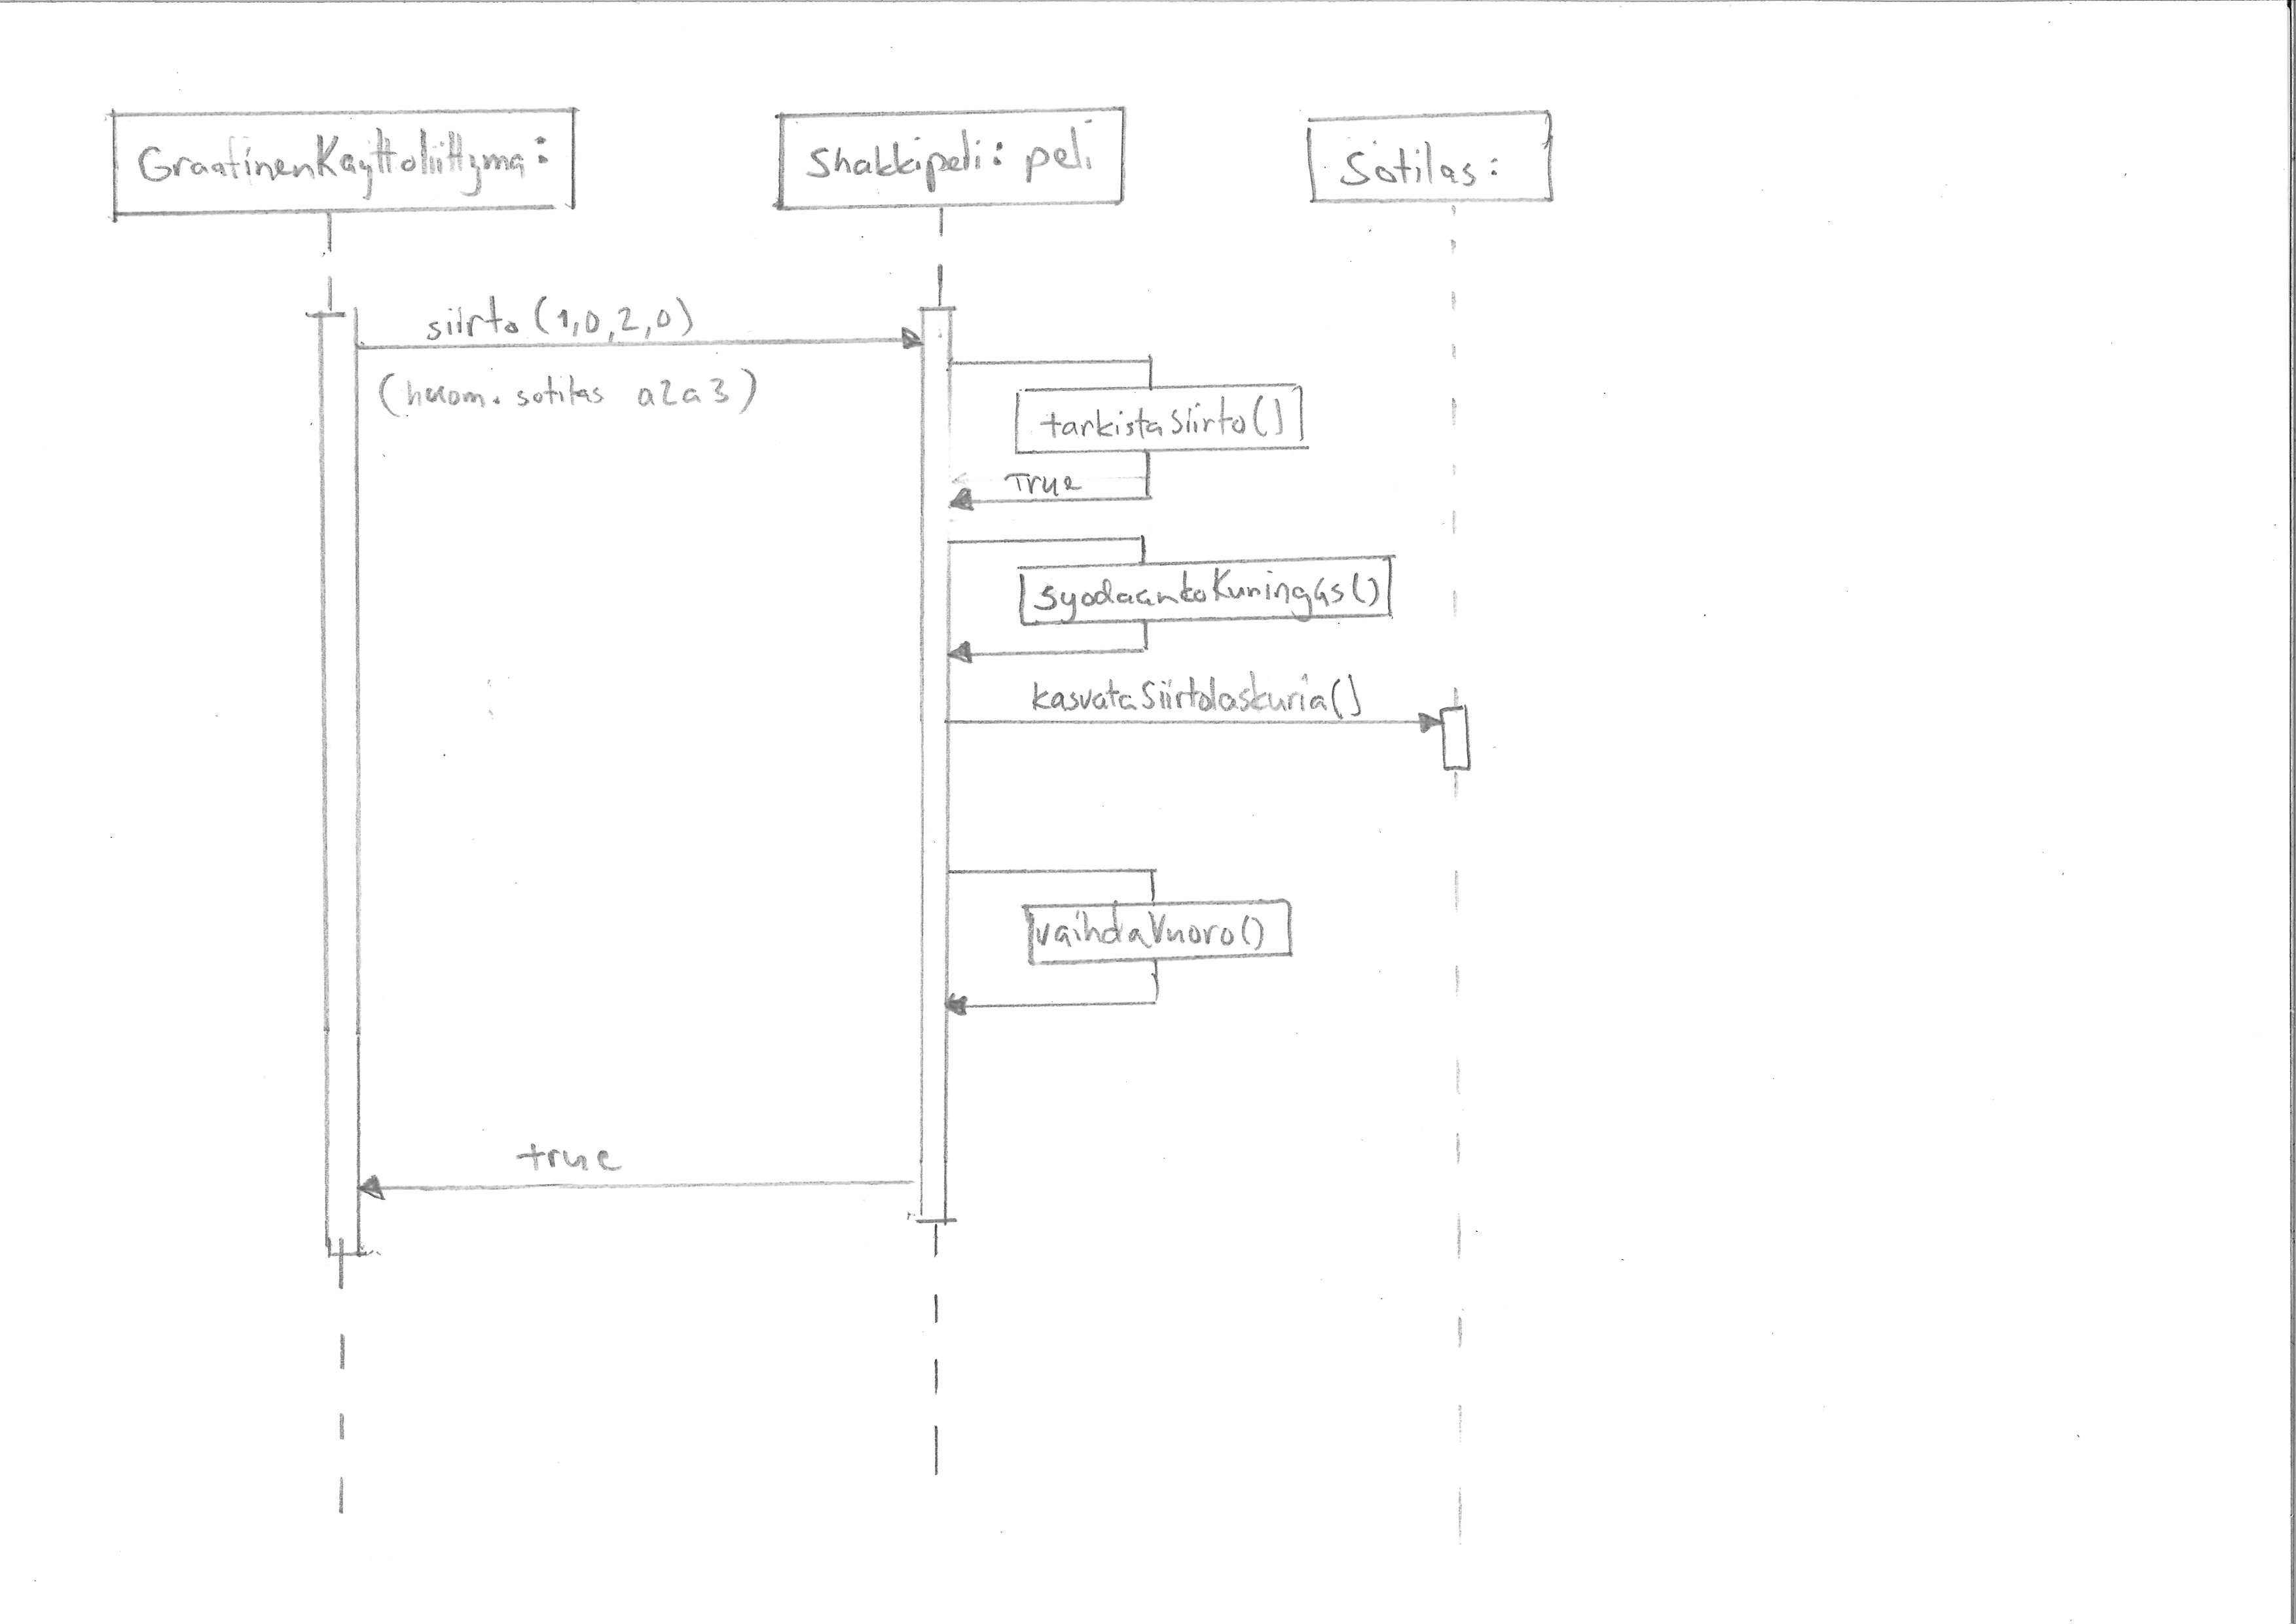 GraafinenKayttoliittyma:
Shakkipeli: peli
Sotilas:
siirto (1,0,2,0)
(huom. sotilas a2a3)
tarkistaSiirto()
True
syodaankoKuningas()
kasvataSiirtolaskuria()
vaihdaVuoro()
true